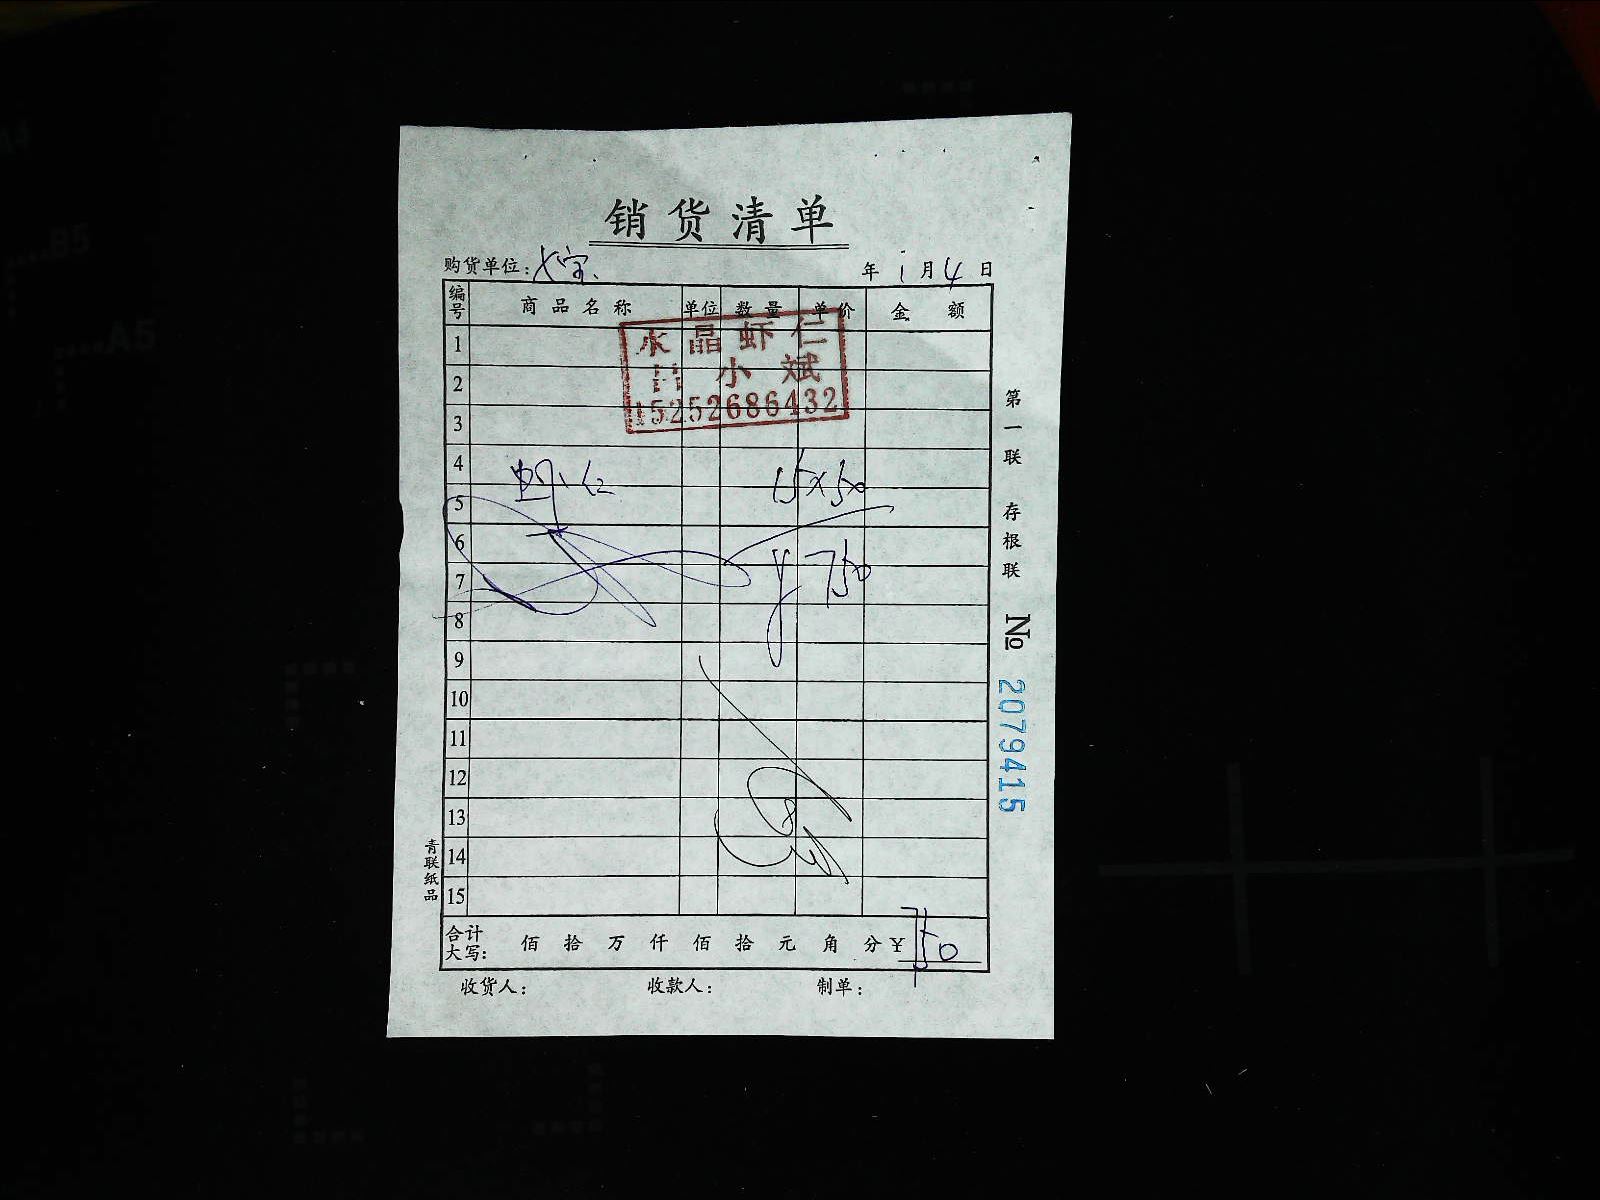 销货清单
购货单位: 大宝 年 1 月 4 日
编号 商品名称 单位 数量 单价 金额
水晶虾仁
小斌
15252686432
1
2
3
4 虾仁 15×50
5
6
7 ¥750
8
9
10
11
12
13
14
15
合计大写: 佰 拾 万 仟 佰 拾 元 角 分 ¥ 750
收货人: 收款人: 制单:
第一联 存根联
№ 2079415
青联纸品
B5
A5